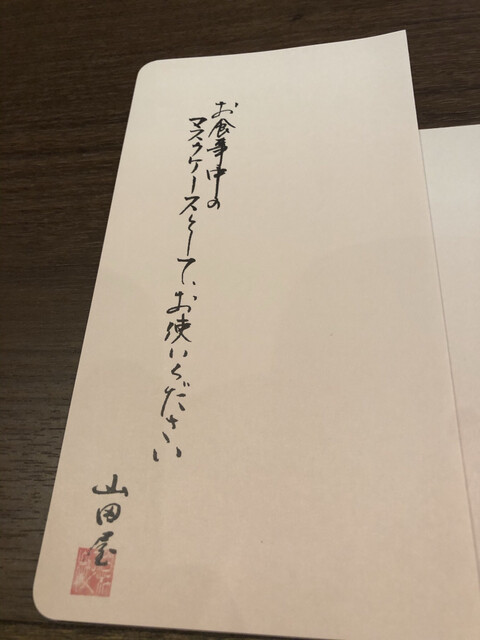 お食事中の
マスクケースとして、お使いください
山田屋